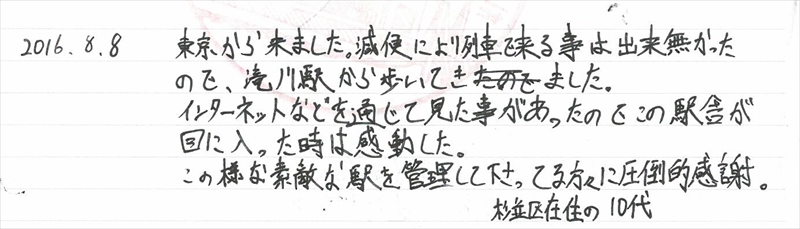 2016.8.8 東京から来ました。減便により列車で来る事は出来無かった
ので、滝川駅から歩いてきたのでました。
インターネットなどを通じて見た事があったのでこの駅舎が
目に入った時は感動した。
この様な素敵な駅を管理して下さってる方々に圧倒的感謝。
杉並区在住の10代